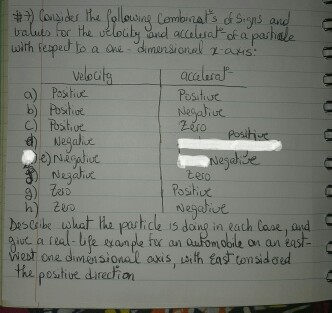 #7) Consider the following Combinatⁿs of Signs and
values for the velocity and acceleratⁿ of a particle
with respect to a one-dimensional x-axis:
Velocity acceleratⁿ
a) Positive Positive
b) Positive Negative
c) Positive Zero
d) Negative Positive
e) Negative Negative
f) Negative Zero
g) Zero Positive
h) Zero Negative
Describe what the particle is doing in each Case, and
give a real-life example for an automobile on an east-
west one dimensional axis, with East considered
the positive direction